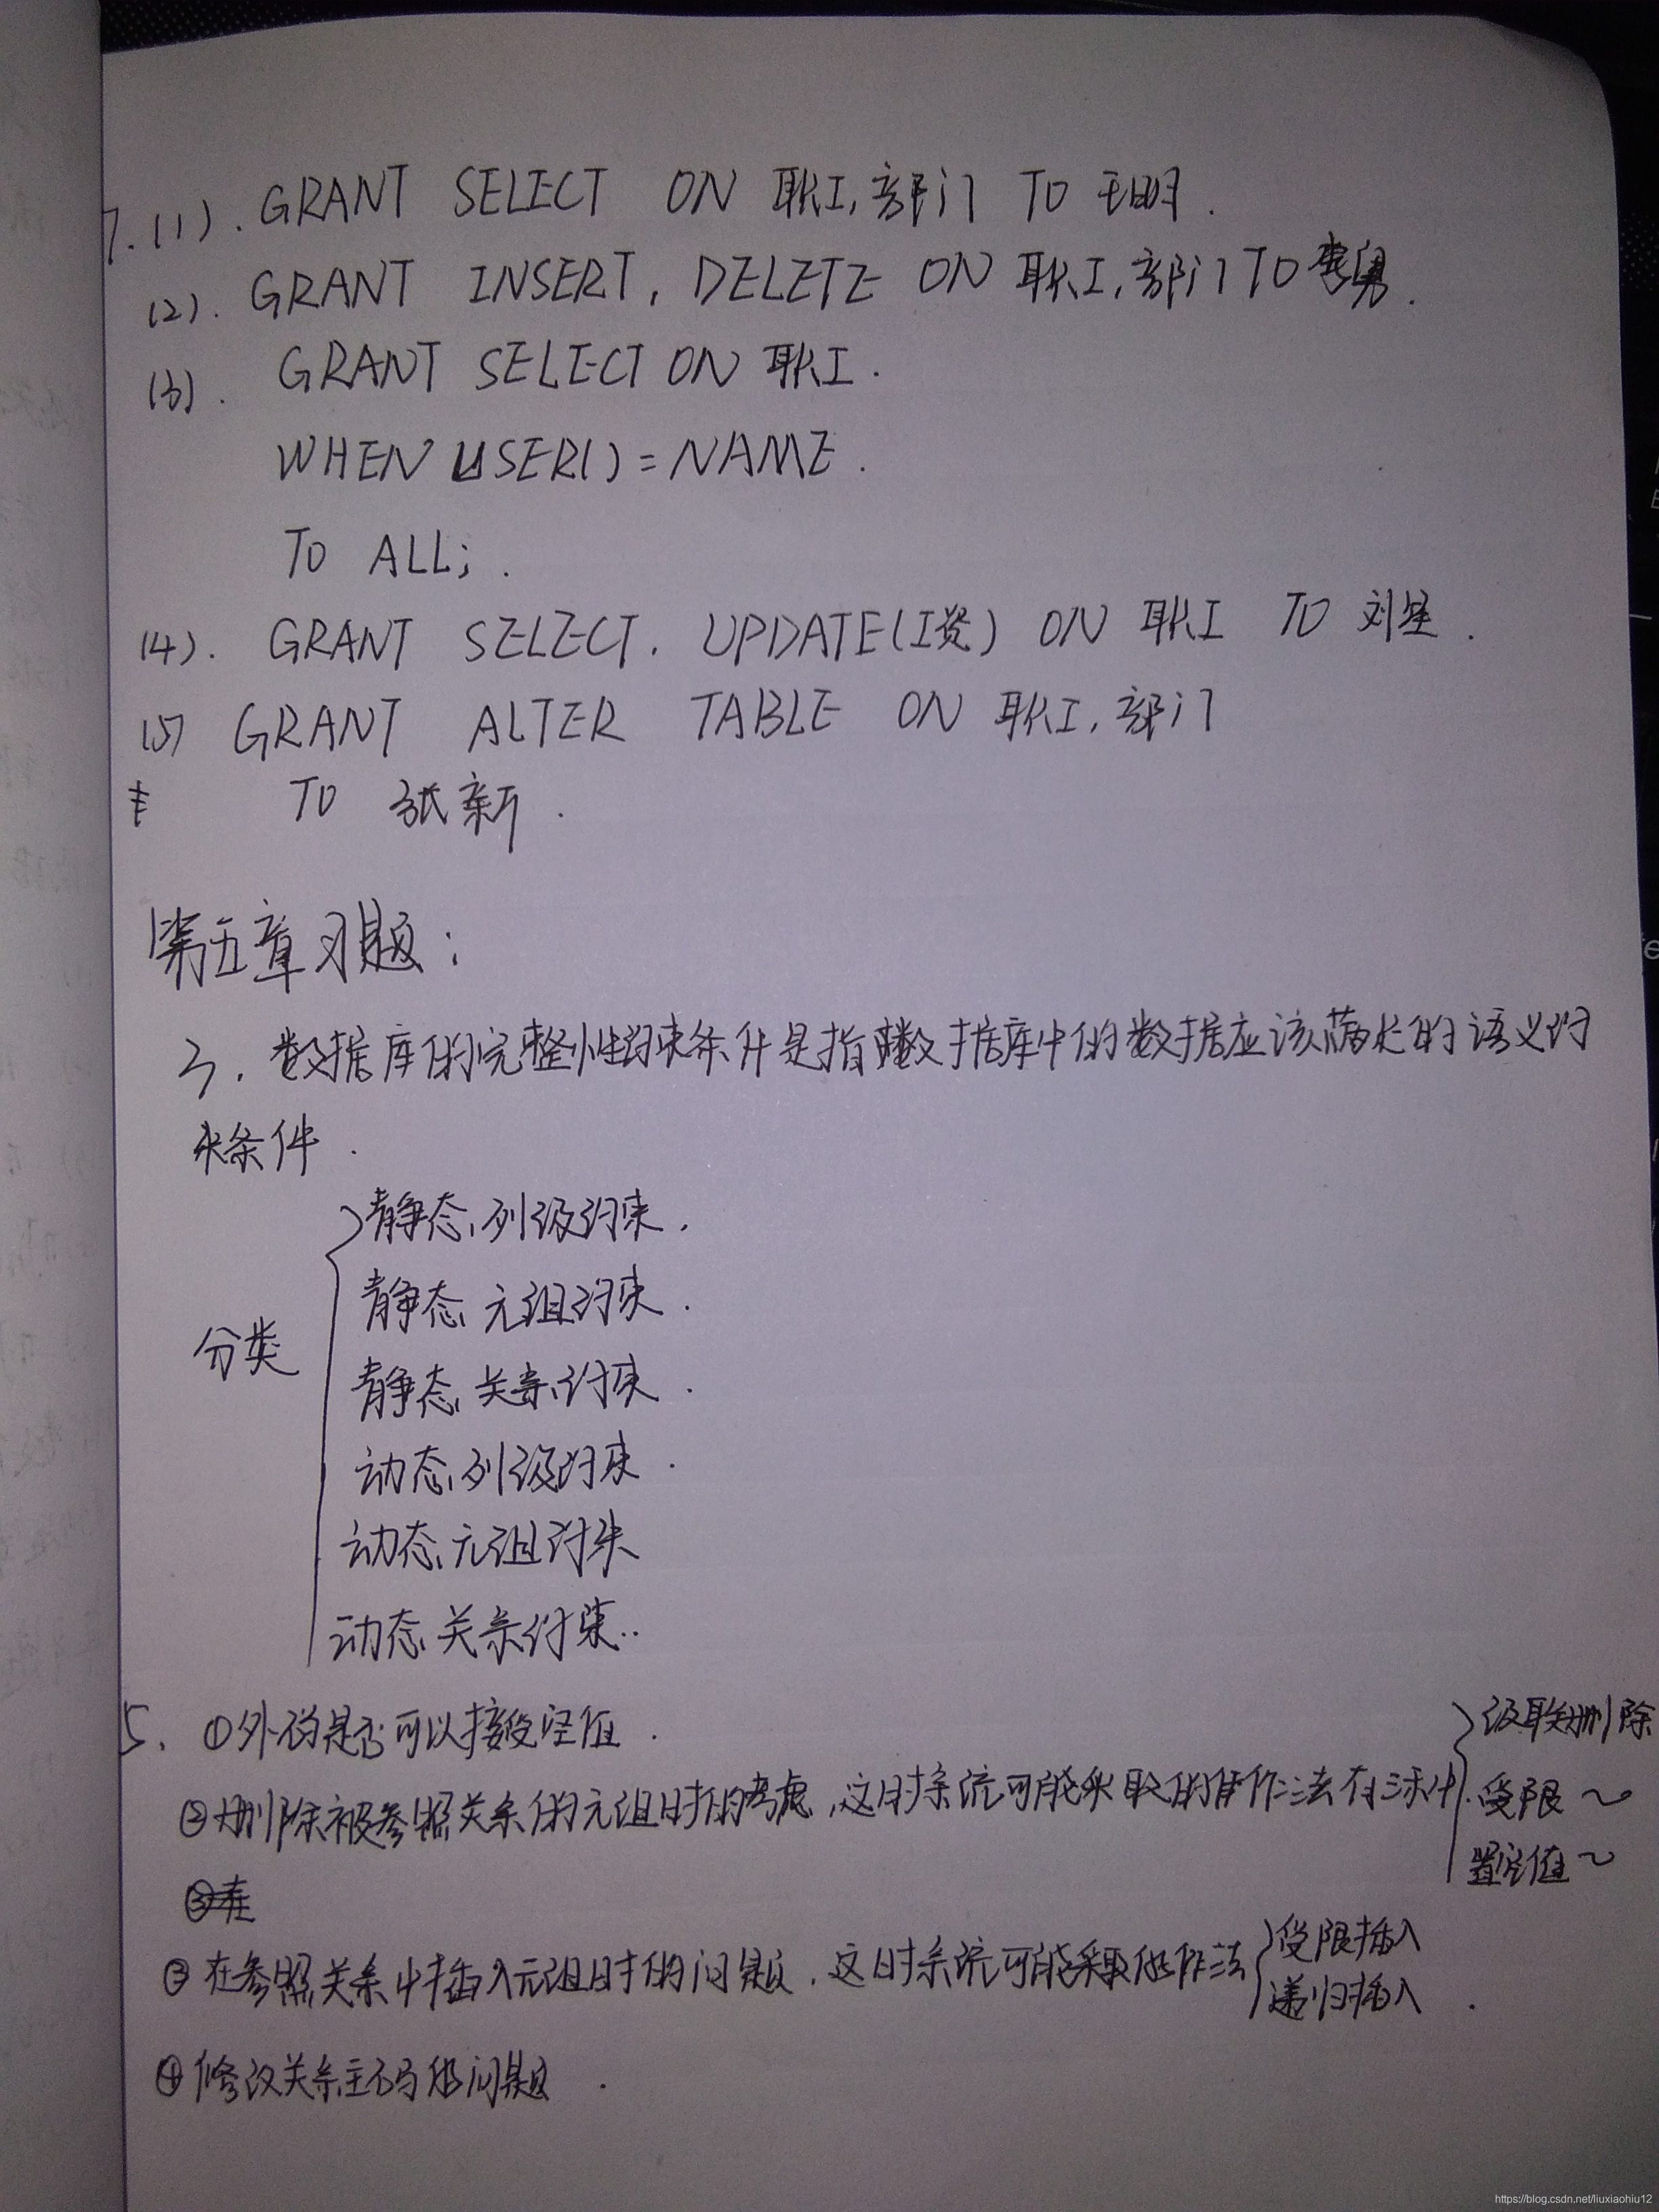 7.(1). GRANT SELECT ON 职工,部门 TO 王明.
(2). GRANT INSERT, DELETE ON 职工,部门 TO 李勇.
(3). GRANT SELECT ON 职工.
WHEN USER()=NAME.
TO ALL;.
(4). GRANT SELECT, UPDATE(工资) ON 职工 TO 刘星.
(5) GRANT ALTER TABLE ON 职工,部门
TO 张新.
第五章习题:
3. 数据库的完整性约束条件是指数据库中的数据应该满足的语义约
束条件.
静态列级约束.
静态元组约束.
分类
静态关系约束.
动态列级约束.
动态元组约束
动态关系约束..
5. ①外码是否可以接受空值.
级联删除
②删除被参照关系的元组时的考虑,这时系统可能采取的作法有三种.
受限~
置空值~
③在
③在参照关系中插入元组时的问题,这时系统可能采取的作法
受限插入
递归插入.
④修改关系主码的问题.
https://blog.csdn.net/liuxiaohiu12